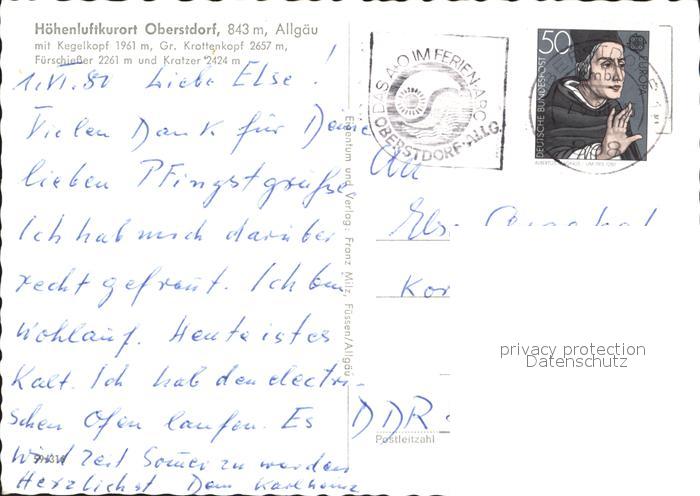 Höhenluftkurort Oberstdorf, 843 m, Allgäu
mit Kegelkopf 1961 m, Gr. Krottenkopf 2657 m,
Fürschießer 2261 m und Kratzer 2424 m
1. VI. 80 Liebe Else !
Vielen Dank für Deine
lieben Pfingstgrüße
Ich hab mich darüber
recht gefreut. Ich bin
wohlauf. Heute ist es
kalt. Ich hab den electri-
schen Ofen laufen. Es
wird Zeit Sommer zu werden
Herzlichst Dein Karlheinz
Eigentum und Verlag: Franz Milz, Füssen/Allgäu
DAS A·O IM FERIEN-ABC
OBERSTDORF-ALLG.
50
DEUTSCHE BUNDESPOST
EUROPA
An
Kor
DDR
Postleitzahl
privacy protection
Datenschutz